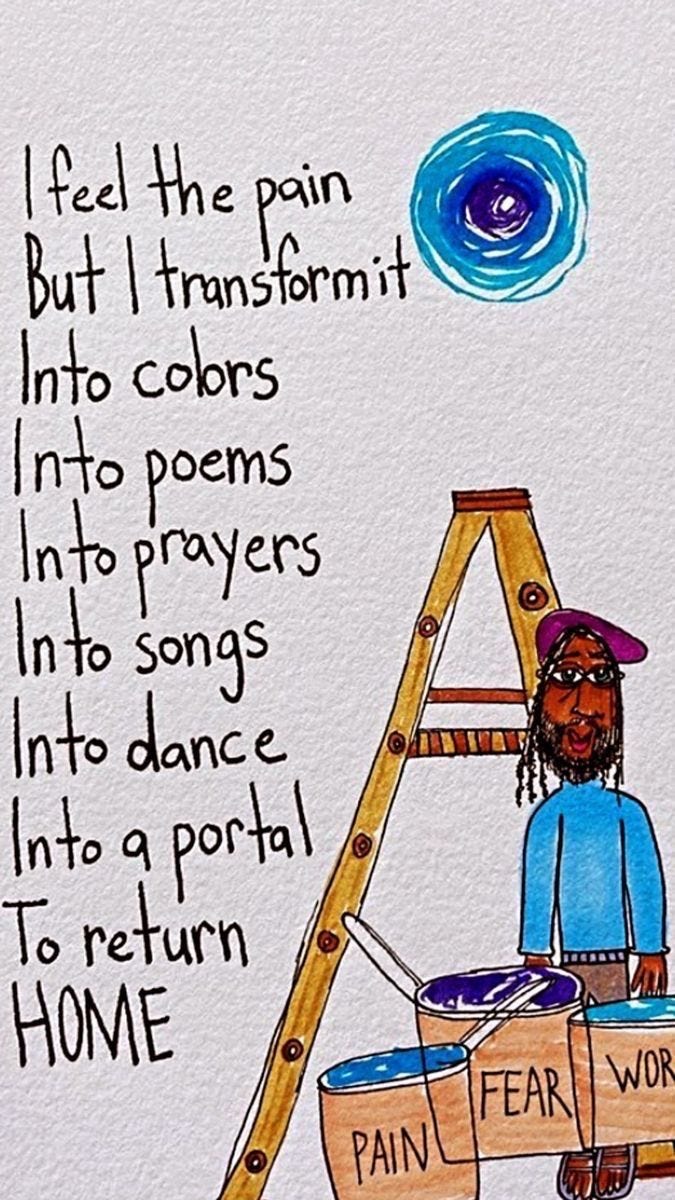 I feel the pain
But I transform it
Into colors
Into poems
Into prayers
Into songs
Into dance
Into a portal
To return
HOME
PAIN
FEAR
WOR